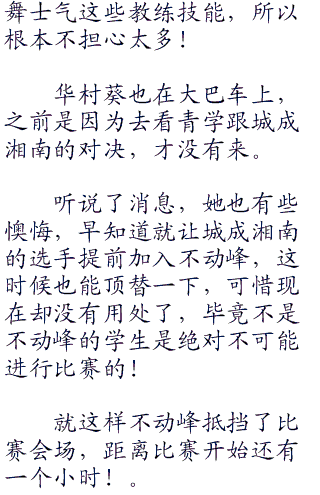 舞士气这些教练技能，所以
根本不担心太多！
华村葵也在大巴车上，
之前是因为去看青学跟城成
湘南的对决，才没有来。
听说了消息，她也有些
懊悔，早知道就让城成湘南
的选手提前加入不动峰，这
时候也能顶替一下，可惜现
在却没有用处了，毕竟不是
不动峰的学生是绝对不可能
进行比赛的！
就这样不动峰抵挡了比
赛会场，距离比赛开始还有
一个小时！。